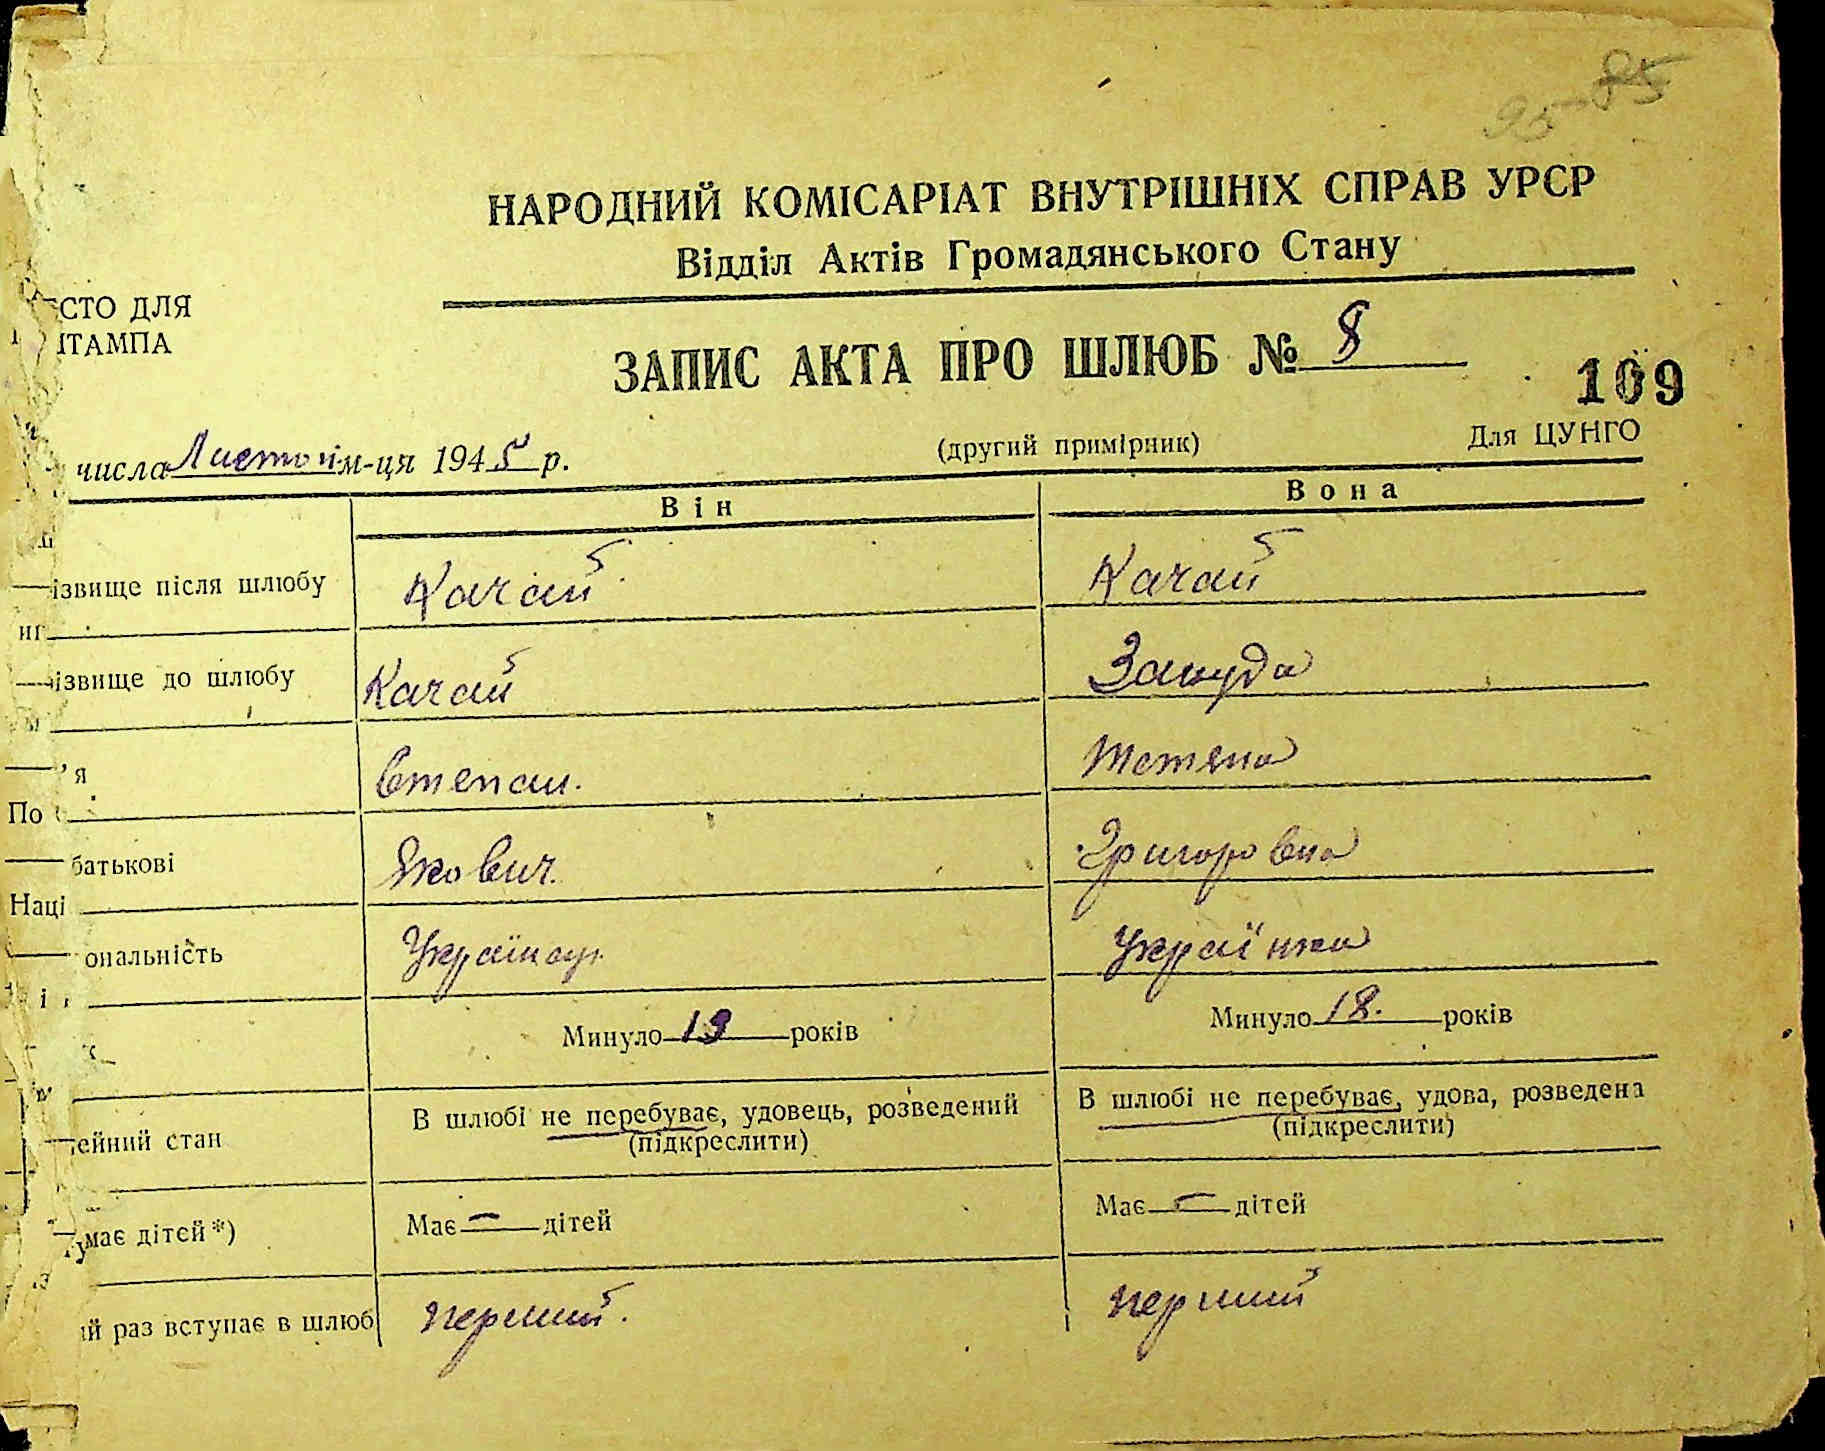 95 85
НАРОДНИЙ КОМІСАРІАТ ВНУТРІШНІХ СПРАВ УРСР
Відділ Актів Громадянського Стану
СТО ДЛЯ
ТАМПА
ЗАПИС АКТА ПРО ШЛЮБ № 8
109
числа м-ця 1945 р.
(другий примірник)
Для ЦУНГО
Він Вона
ізвище після шлюбу Качай Качай
ізвище до шлюбу Качай Закуда
'я Степан. Тетяна
По
батькові Якович. Григоровна
Наці
ональність Українець Українка
Минуло 19 років Минуло 18. років
ейний стан В шлюбі не перебуває, удовець, розведений В шлюбі не перебуває, удова, розведена
(підкреслити) (підкреслити)
має дітей*) Має — дітей Має — дітей
ій раз вступає в шлюб перший. перший